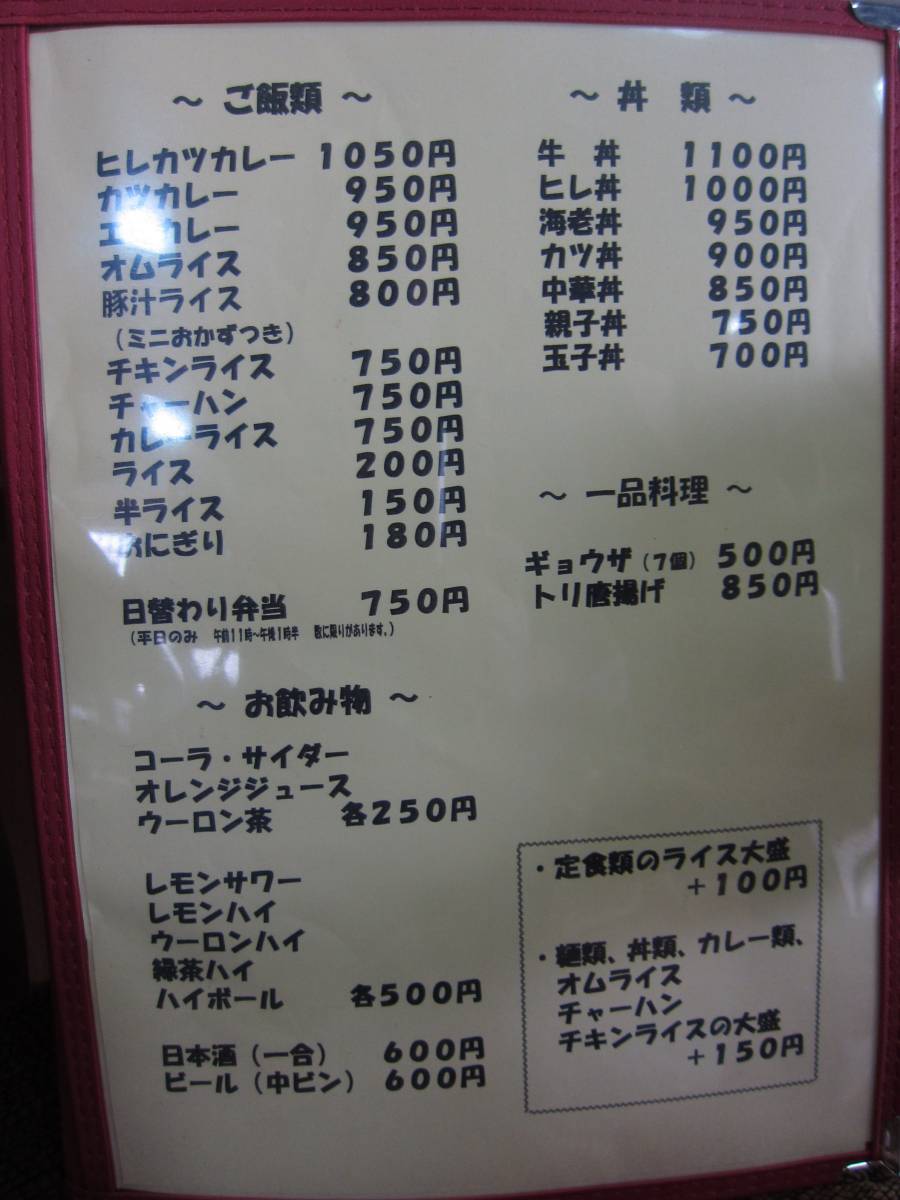 ～ ご飯類 ～
ヒレカツカレー 1050円
カツカレー 950円
エ カレー 950円
オムライス 850円
豚汁ライス 800円
（ミニおかずつき）
チキンライス 750円
チャーハン 750円
カレーライス 750円
ライス 200円
半ライス 150円
おにぎり 180円
日替わり弁当 750円
（平日のみ 午前11時～午後1時半 数に限りがあります。）
～ お飲み物 ～
コーラ・サイダー
オレンジジュース
ウーロン茶 各250円
レモンサワー
レモンハイ
ウーロンハイ
緑茶ハイ
ハイボール 各500円
日本酒（一合） 600円
ビール（中ビン） 600円
～ 丼 類 ～
牛 丼 1100円
ヒレ丼 1000円
海老丼 950円
カツ丼 900円
中華丼 850円
親子丼 750円
玉子丼 700円
～ 一品料理 ～
ギョウザ（7個） 500円
トリ唐揚げ 850円
・定食類のライス大盛
＋100円
・麺類、丼類、カレー類、
オムライス
チャーハン
チキンライスの大盛
＋150円